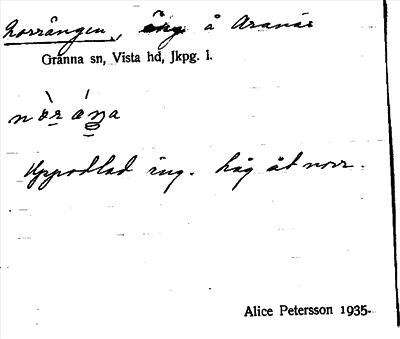 Norrängen, äng å Aranäs
Gränna sn, Vista hd, Jkpg. l.
Uppodlad äng. Låg åt norr.
Alice Petersson 1935-